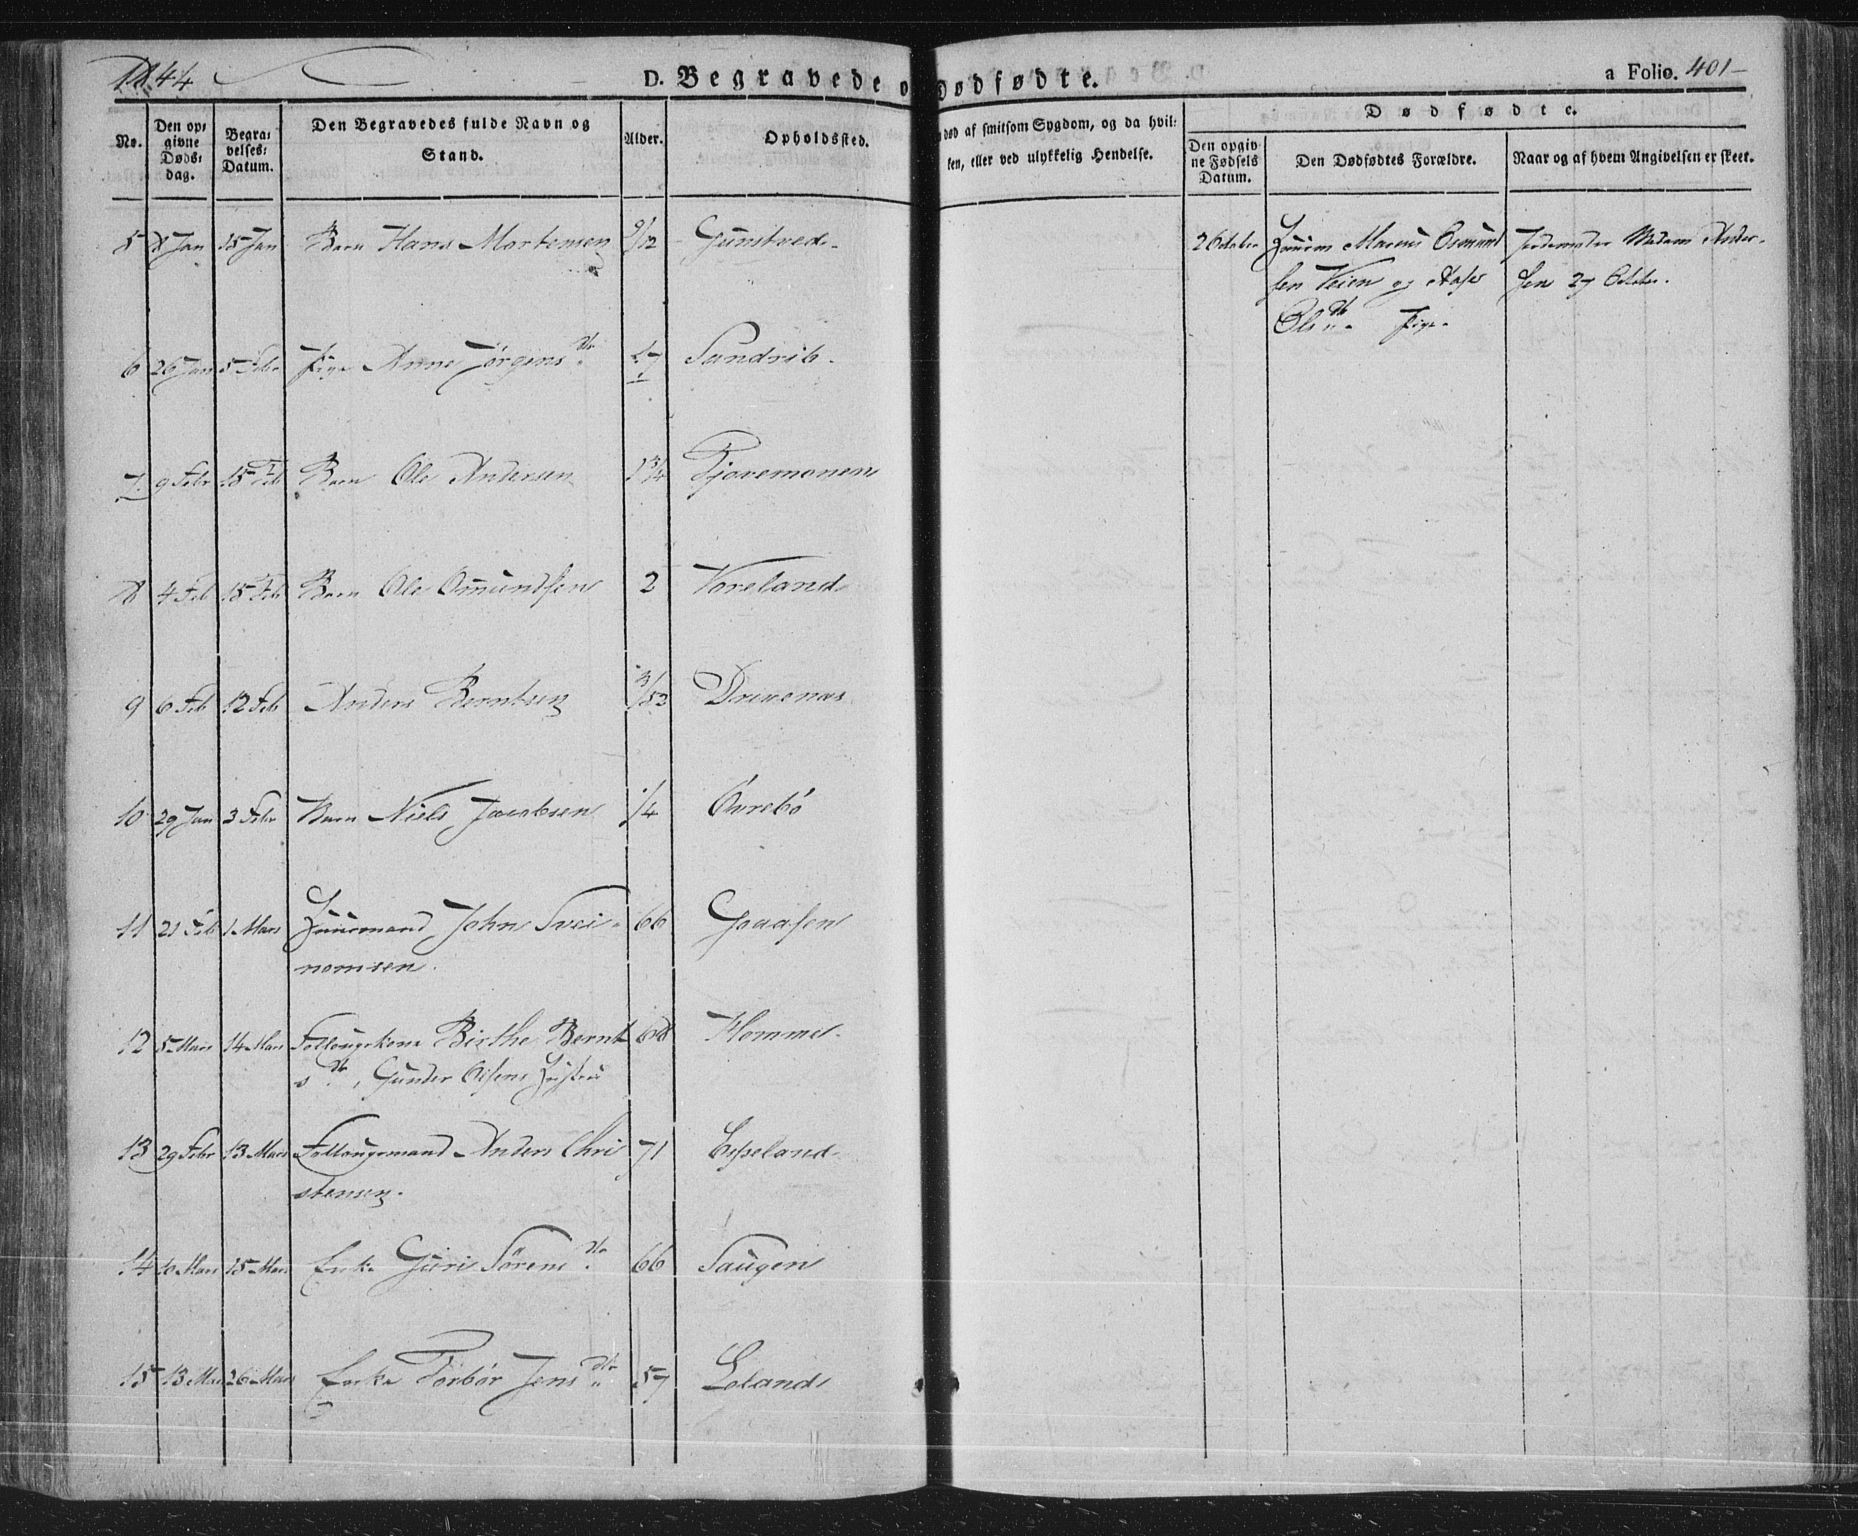 1844
D. Begravede o
Dødfødte.
a Folio. 401-
No.
Den op:
givne
Døds:
dag.
Begra:
velses:
Datum.
Den Begravedes fulde Navn og
Stand.
Alder.
Opholdssted.
død af smitsom Sygdom, og da hvil:
ken, eller ved ulykkelig Hendelse.
Dødfødte.
Den opgiv
ne Fødsels
Datum.
Den Dødfødtes Forældre.
Naar og af hvem Angivelsen er skeet.
5 8 Jan 15 Jan Barn Hans Mortensen 9/12 Gunstved.
2 October Marcus Osmund
sen Veien og
Ols dtr Pige.
Jordemoder Madam Ander-
sen 27 October.
6 26 Jan 5 Febr Pige Anne Jörgens dtr 27 Sandrib.
7 9 Febr 15 Feb Barn Ole Andersen 1 3/4 Tjovemonen
8 4 Feb 15 Feb Barn Ole Omundsen 2 Voreland
9 6 Feb 12 Feb Anders Berntsen 3/52 Drivenæs
10 29 Jan 3 Febr Barn Niels Jacobsen 1/4 Öurebö
11 21 Feb 1 Mars Huusmand John Svei-
nomsen.
66 Gaasen
12 5 Mars 14 Mars Follougskone Birthe Bernt
s dtr, Gunder Olsens Hustru
68 Hommel
13 29 Febr 13 Mars Follougsmand Anders Chri
stensen.
71 Espeland
14 6 Mars 15 Mars Enke Guri Sörens dtr 66 Saugen
15 13 Mar 26 Mars Enke Torbör Jens dtr 57 Loland